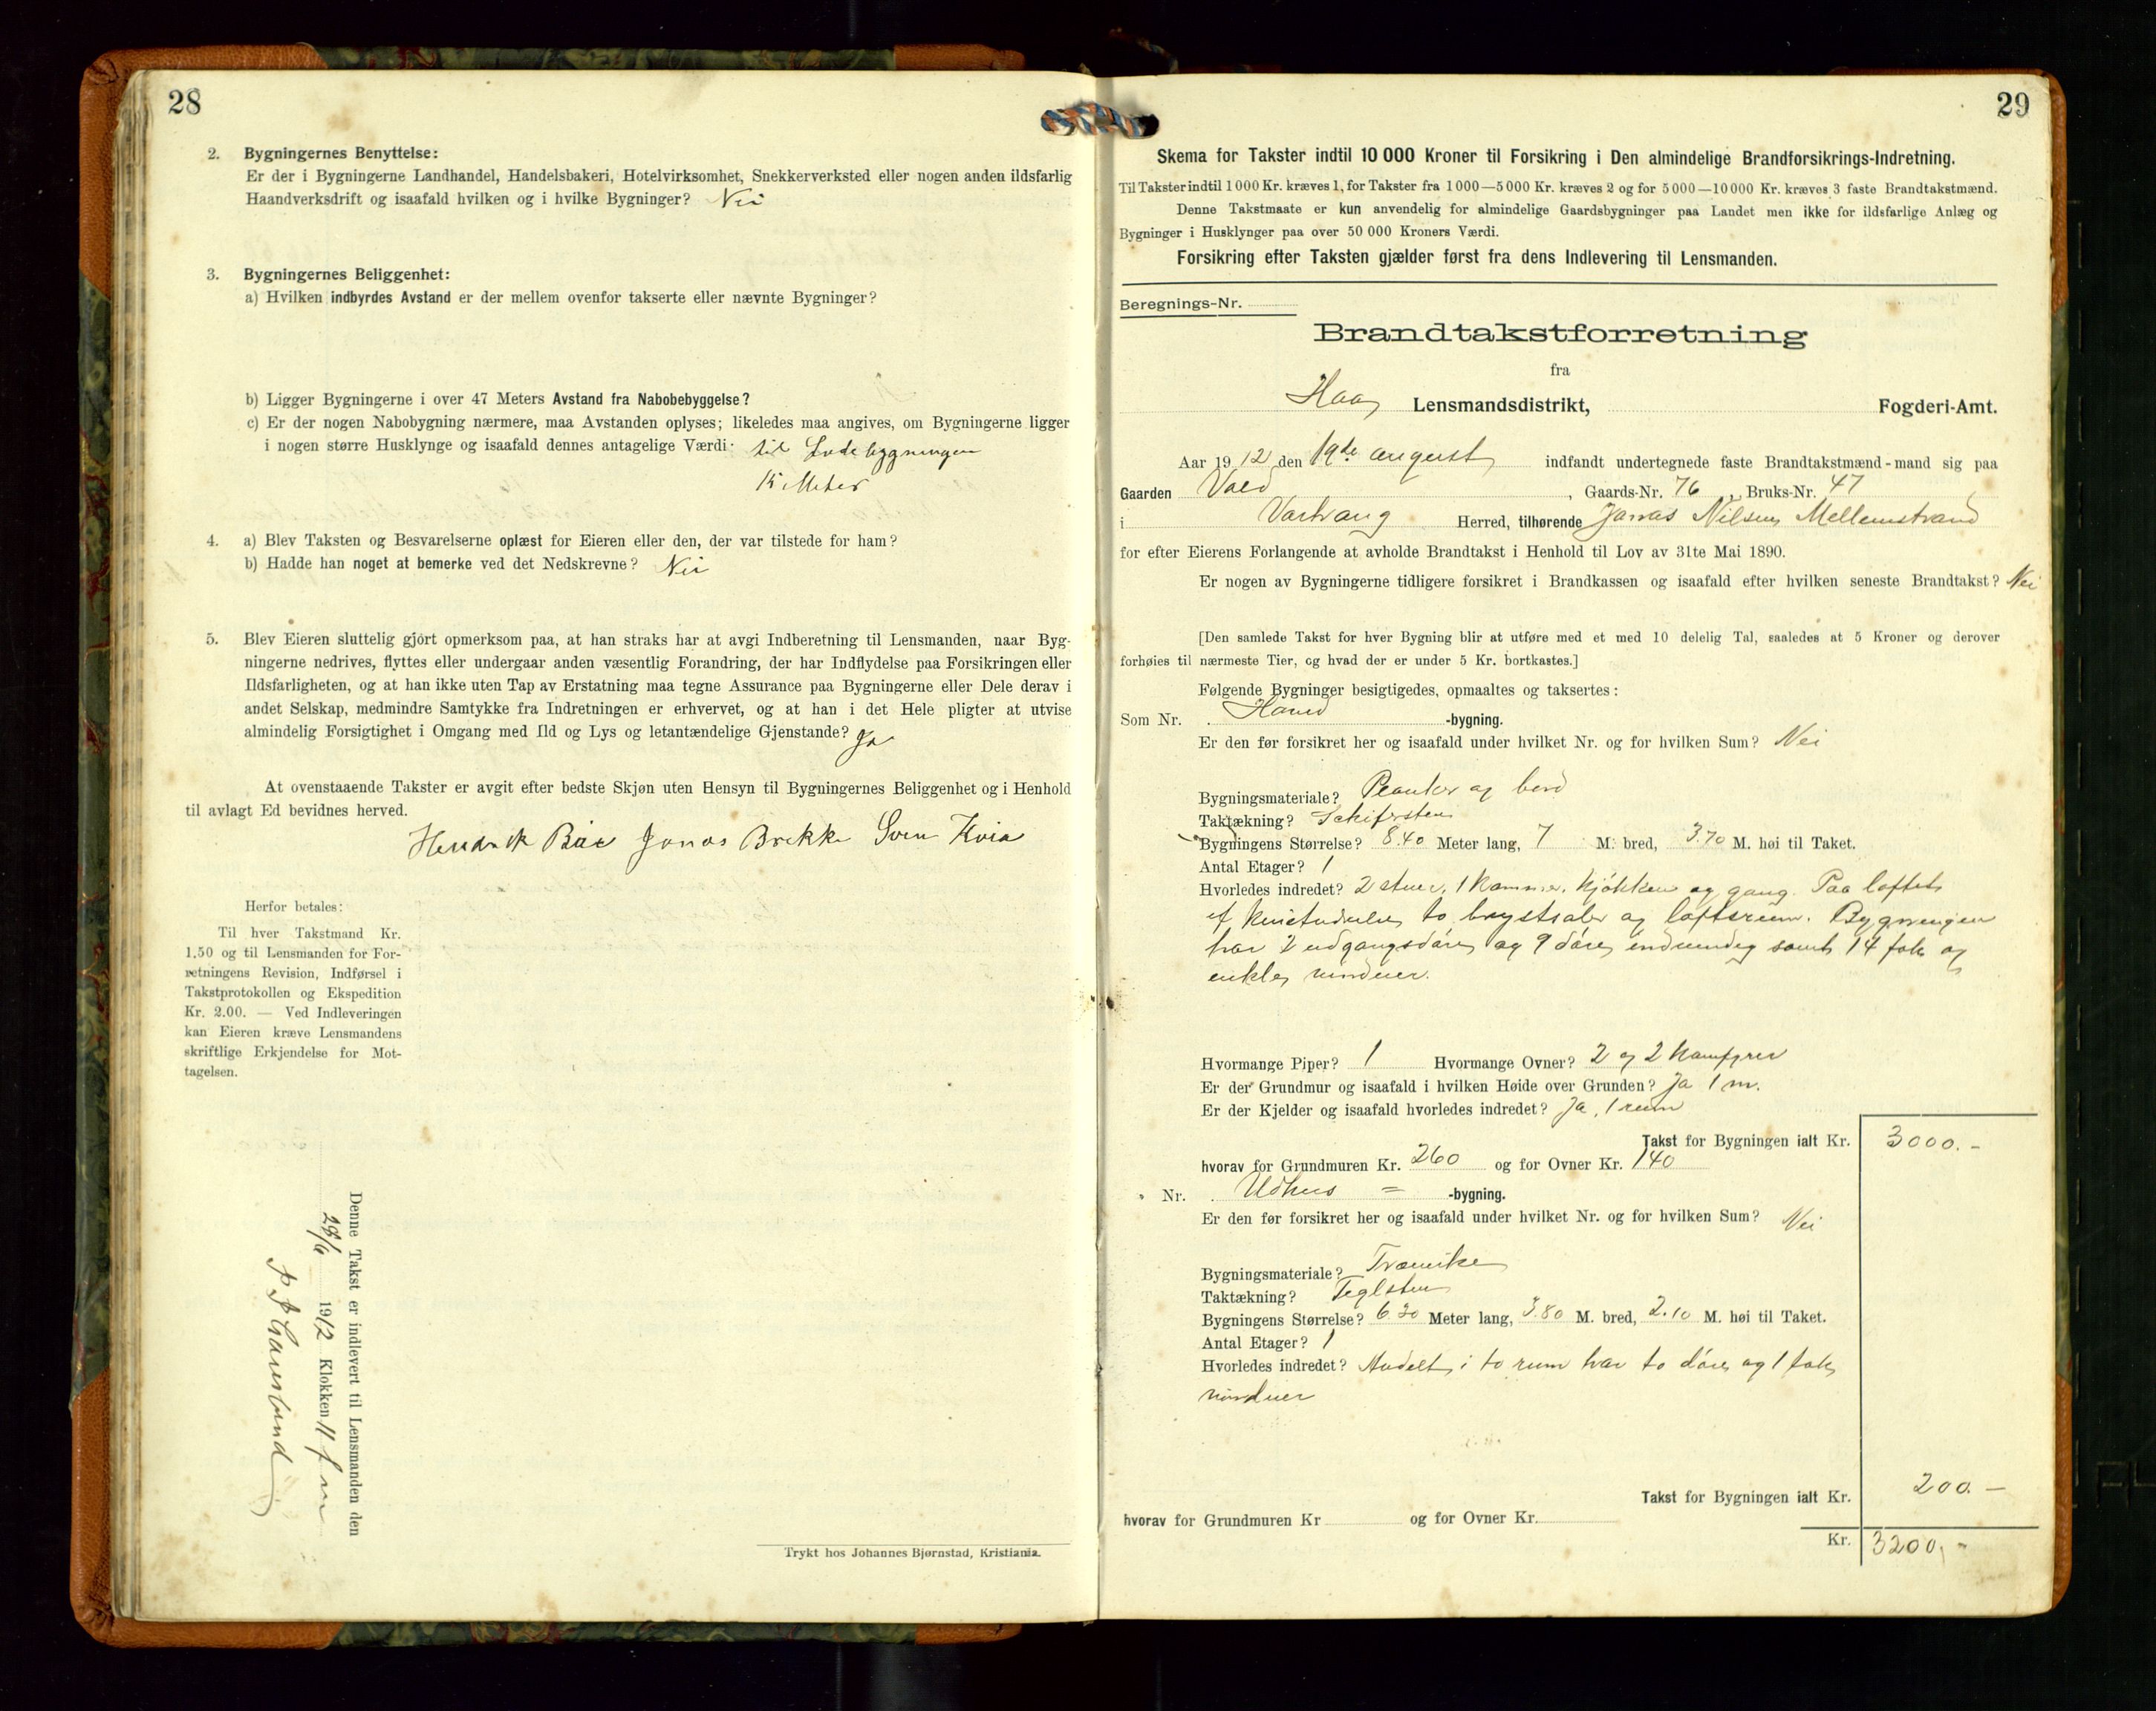 28
2. Bygningernes Benyttelse:
Er der i Bygningerne Landhandel, Handelsbakeri, Hotelvirksomhet, Snekkerverksted eller nogen anden ildsfarlig
Haandverksdrift og isaafald hvilken og i hvilke Bygninger? Nei
3. Bygningernes Beliggenhet:
a) Hvilken indbyrdes Avstand er der mellem ovenfor takserte eller nævnte Bygninger?
b) Ligger Bygningerne i over 47 Meters Avstand fra Nabobebyggelse?
c) Er der nogen Nabobygning nærmere, maa Avstanden oplyses; likeledes maa angives, om Bygningerne ligger
i nogen større Husklynge og isaafald dennes antagelige Værdi: til Lodebygningen
15 Meter
4. a) Blev Taksten og Besvarelserne oplæst for Eieren eller den, der var tilstede for ham?
b) Hadde han noget at bemerke ved det Nedskrevne? Nei
5. Blev Eieren sluttelig gjort opmerksom paa, at han straks har at avgi Indberetning til Lensmanden, naar Byg-
ningerne nedrives, flyttes eller undergaar anden væsentlig Forandring, der har Indflydelse paa Forsikringen eller
Ildsfarligheten, og at han ikke uten Tap av Erstatning maa tegne Assurance paa Bygningerne eller Dele derav i
andet Selskap, medmindre Samtykke fra Indretningen er erhvervet, og at han i det Hele pligter at utvise
almindelig Forsigtighet i Omgang med Ild og Lys og letantændelige Gjenstande? Ja
At ovenstaaende Takster er avgit efter bedste Skjøn uten Hensyn til Bygningernes Beliggenhet og i Henhold
til avlagt Ed bevidnes herved.
Hendrik Bøe Jonas Brekke Sven Kvia
Herfor betales:
Til hver Takstmand Kr.
1.50 og til Lensmanden for For-
retningens Revision, Indførsel i
Takstprotokollen og Ekspedition
Kr. 2.00. — Ved Indleveringen
kan Eieren kræve Lensmandens
skriftlige Erkjendelse for Mot-
tagelsen.
Denne Takst er indlevert til Lensmanden den
1912 Klokken 11 fm
Trykt hos Johannes Bjørnstad, Kristiania.
29
Skema for Takster indtil 10 000 Kroner til Forsikring i Den almindelige Brandforsikrings-Indretning.
Til Takster indtil 1000 Kr. kræves 1, for Takster fra 1000—5000 Kr. kræves 2 og for 5000—10000 Kr. kræves 3 faste Brandtakstmænd.
Denne Takstmaate er kun anvendelig for almindelige Gaardsbygninger paa Landet men ikke for ildsfarlige Anlæg og
Bygninger i Husklynger paa over 50 000 Kroners Værdi.
Forsikring efter Taksten gjælder først fra dens Indlevering til Lensmanden.
Beregnings-Nr.
Brandtakstforretning
fra
Haa Lensmandsdistrikt, Fogderi-Amt.
Aar 1912 den 19de august indfandt undertegnede faste Brandtakstmænd-mand sig paa
Gaarden Gaards-Nr. 76, Bruks-Nr. 47
i Herred, tilhørende Jonas Nilsen Mellemstrand
for efter Eierens Forlangende at avholde Brandtakst i Henhold til Lov av 31te Mai 1890.
Er nogen av Bygningerne tidligere forsikret i Brandkassen og isaafald efter hvilken seneste Brandtakst? Nei
[Den samlede Takst for hver Bygning blir at utføre med et med 10 delelig Tal, saaledes at 5 Kroner og derover
forhøies til nærmeste Tier, og hvad der er under 5 Kr. bortkastes.]
Følgende Bygninger besigtigedes, opmaaltes og taksertes:
Som Nr. -bygning.
Er den før forsikret her og isaafald under hvilket Nr. og for hvilken Sum? Nei
Bygningsmateriale? Planker og bord
Taktækning? Schifersten
Bygningens Størrelse? 8.40 Meter lang, 7 M. bred, 3.70 M. høi til Taket.
Antal Etager? 1
Hvorledes indredet? 2 stuer, 1 kammer, kjøkken og gang. Paa loftet
to brystsaler og loftsrum. Bygningen
har 2 udgangsdøre og 9 døre indvendig samt 14 fals og
enkle vinduer.
Hvormange Piper? 1 Hvormange Ovner? 2 og 2 komfyrer
Er der Grundmur og isaafald i hvilken Høide over Grunden? Ja 1 m.
Er der Kjelder og isaafald hvorledes indredet? Ja, 1 rum
Takst for Bygningen ialt Kr. 3000.-
hvorav for Grundmuren Kr. 260 og for Ovner Kr. 140
Nr. Udhus = -bygning.
Er den før forsikret her og isaafald under hvilket Nr. og for hvilken Sum? Nei
Bygningsmateriale? Trævirke
Taktækning? Teglsten
Bygningens Størrelse? 6.30 Meter lang, 3.80 M. bred, 2.10 M. høi til Taket.
Antal Etager? 1
Hvorledes indredet? Avdelt i to rum har to døre og 1 fals
vinduer
Takst for Bygningen ialt Kr. 200.-
hvorav for Grundmuren Kr og for Ovner Kr.
Kr. 3200,-